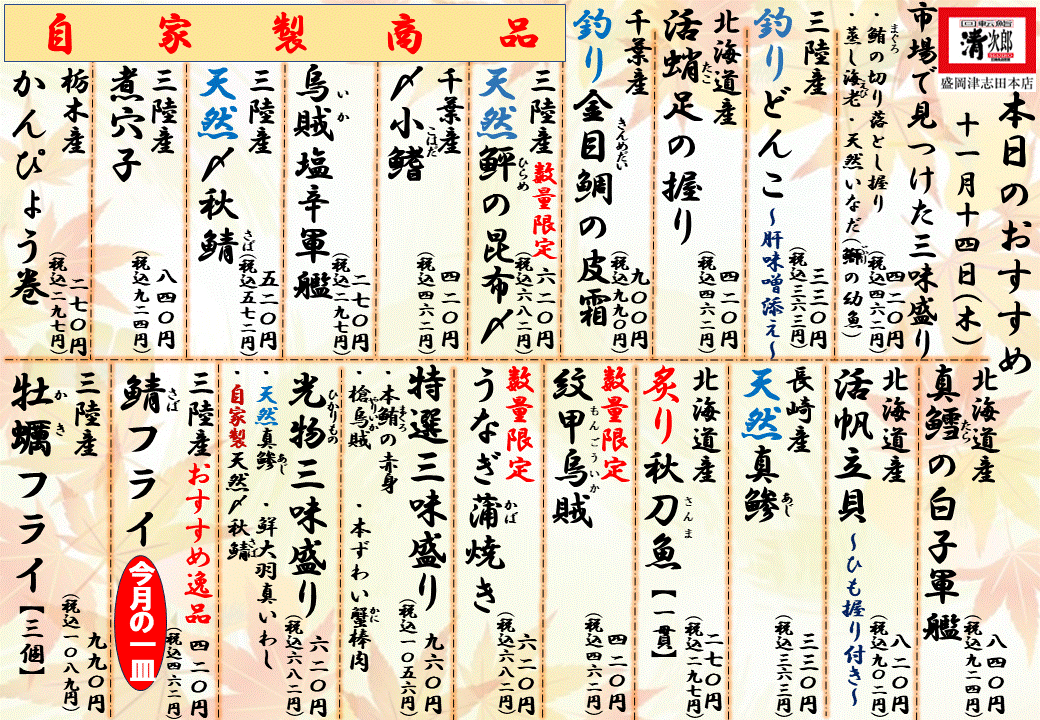 回転鮨
清次郎
盛岡津志田本店
本日のおすすめ
十一月十四日(木)
市場で見つけた三味盛り
・鮪の切り落とし握り
まぐろ
・蒸し海老・天然いなだ(鰤の幼魚)
えび
四二〇円
(税込四六二円)
三陸産
釣りどんこ~肝味噌添え~
三三〇円
(税込三六三円)
北海道産
活蛸足の握り
たこ
四二〇円
(税込四六二円)
千葉産
釣り金目鯛の皮霜
きんめだい
九〇〇円
(税込九九〇円)
自家製商品
三陸産
数量限定
天然鮃の昆布〆
ひらめ
六二〇円
(税込六八二円)
千葉産
〆小鰭
こはだ
四二〇円
(税込四六二円)
烏賊塩辛軍艦
いか
二七〇円
(税込二九七円)
三陸産
天然〆秋鯖
さば
五二〇円
(税込五七二円)
三陸産
煮穴子
八四〇円
(税込九二四円)
栃木産
かんぴょう巻
二七〇円
(税込二九七円)
北海道産
真鱈の白子軍艦
たら
八四〇円
(税込九二四円)
北海道産
活帆立貝~ひも握り付き~
八二〇円
(税込九〇二円)
長崎産
天然真鯵
あじ
三三〇円
(税込三六三円)
北海道産
炙り秋刀魚【一貫】
さんま
二七〇円
(税込二九七円)
数量限定
紋甲烏賊
もんごういか
四二〇円
(税込四六二円)
数量限定
うなぎ蒲焼き
かば
六二〇円
(税込六八二円)
特選三味盛り
・本鮪の赤身
まぐろ
・本ずわい蟹棒肉
かに
・槍烏賊
やりいか
九六〇円
(税込一〇五六円)
光物三味盛り
ひかりもの
・天然真鯵
あじ
・鮮大羽真いわし
・自家製天然〆秋鯖
さば
六二〇円
(税込六八二円)
三陸産おすすめ逸品
鯖フライ
さば
今月の一皿
四二〇円
(税込四六二円)
三陸産
牡蠣フライ【三個】
かき
九九〇円
(税込一〇八九円)